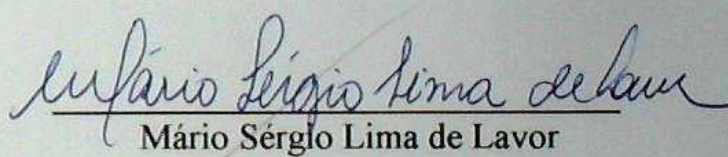 Mário Sérgio Lima de Lavor
Mário Sérgio Lima de Lavor